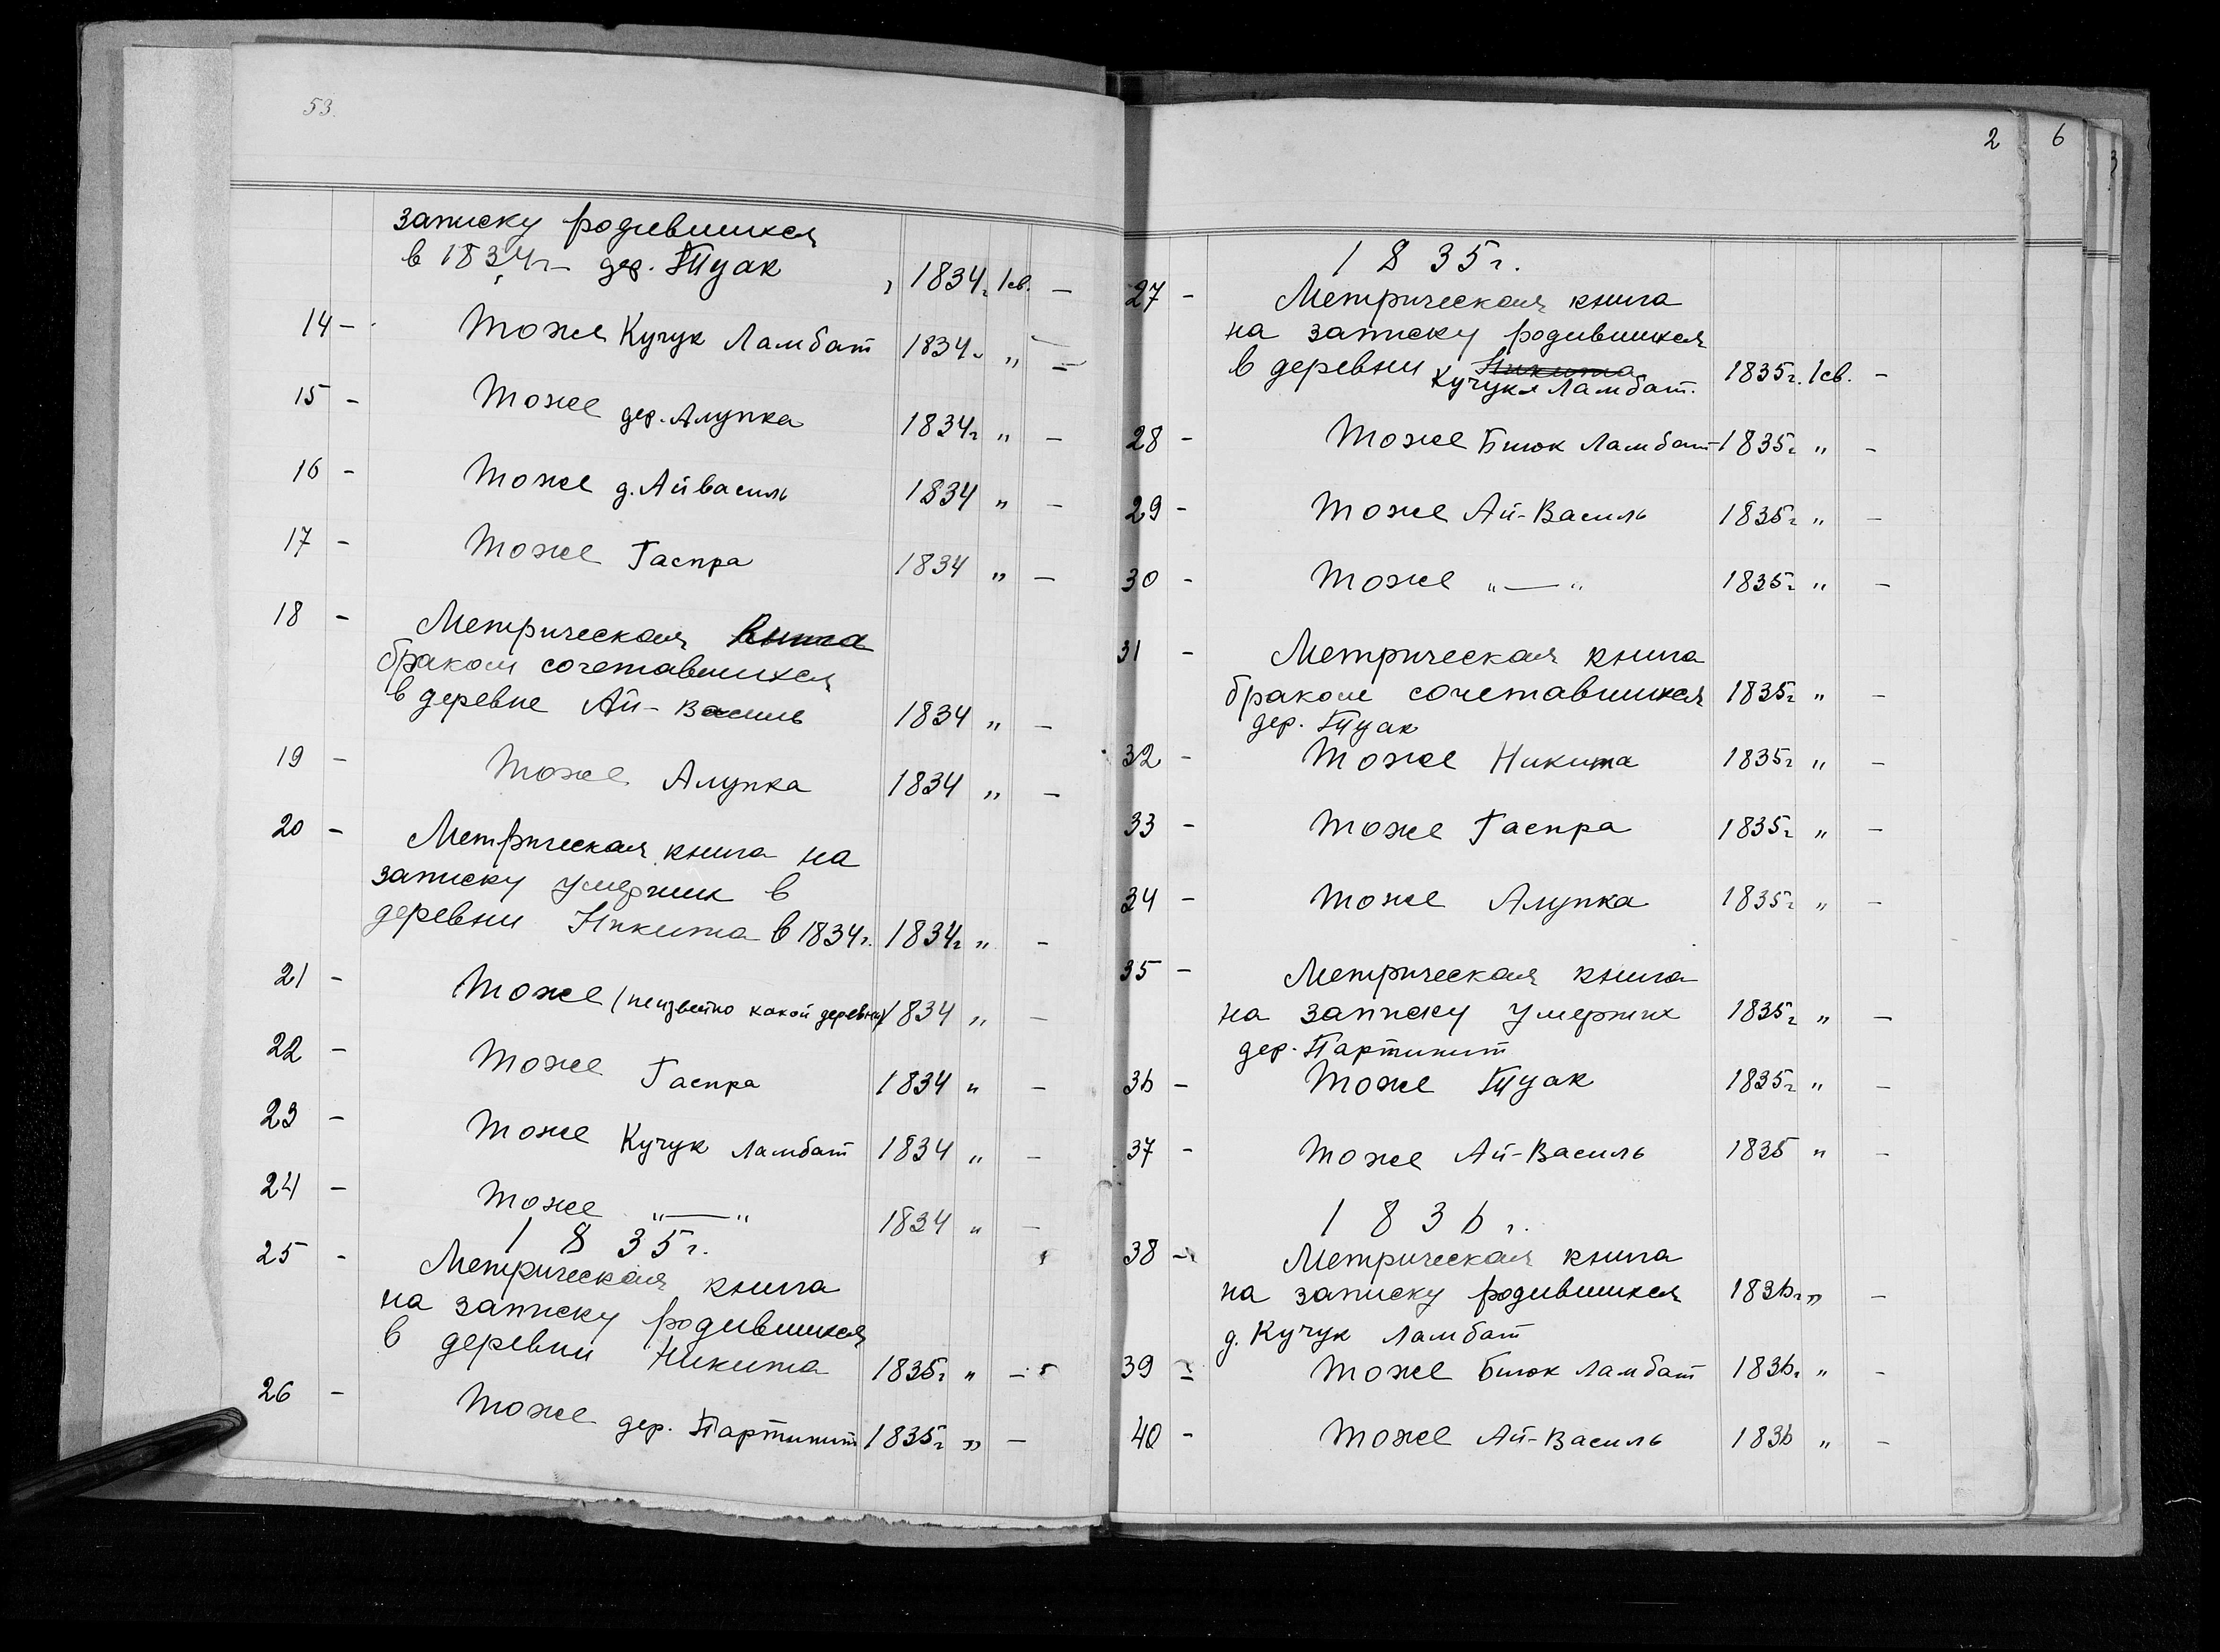 53.
записку родившихся
в 1834г дер. Туак 1834г. 1св. —
14 — Тоже Кучук Ламбат 1834г " —
15 — Тоже дер. Алупка 1834г " —
16 — Тоже д. Айвасиль 1834 " —
17 — Тоже Гаспра 1834 " —
18 — Метрическая книга
браком сочетавшихся
в деревне Ай-Василь 1834 " —
19 — Тоже Алупка 1834 " —
20 — Метрическая книга на
записку умерших в
деревни Никита в 1834г. 1834г " —
21 — Тоже (неизвестно какой деревни) 1834 " —
22 — Тоже Гаспра 1834 " —
23 — Тоже Кучук Ламбат 1834 " —
24 — Тоже "—" 1834 " —
1835г.
25 — Метрическая книга
на записку родившихся
в деревни Никита 1835г " —
26 — Тоже дер. Партинит 1835г " —
2 6
3
1835г.
27 — Метрическая книга
на записку родившихся
в деревни Никита 1835г. 1св. —
Кучук Ламбат.
28 — Тоже Биюк Ламбат 1835г " —
29 — Тоже Ай-Василь 1835г " —
30 — Тоже "—" 1835г " —
31 — Метрическая книга
браком сочетавшихся 1835г " —
дер. Туак
32 — Тоже Никита 1835г " —
33 — Тоже Гаспра 1835г " —
34 — Тоже Алупка 1835г " —
35 — Метрическая книга
на записку умерших 1835г " —
дер. Партинит
36 — Тоже Туак 1835г " —
37 — Тоже Ай-Василь 1835 " —
1836г.
38 — Метрическая книга
на записку родившихся 1836г " —
д. Кучук Ламбат
39 — Тоже Биюк Ламбат 1836г " —
40 — Тоже Ай-Василь 1836 " —